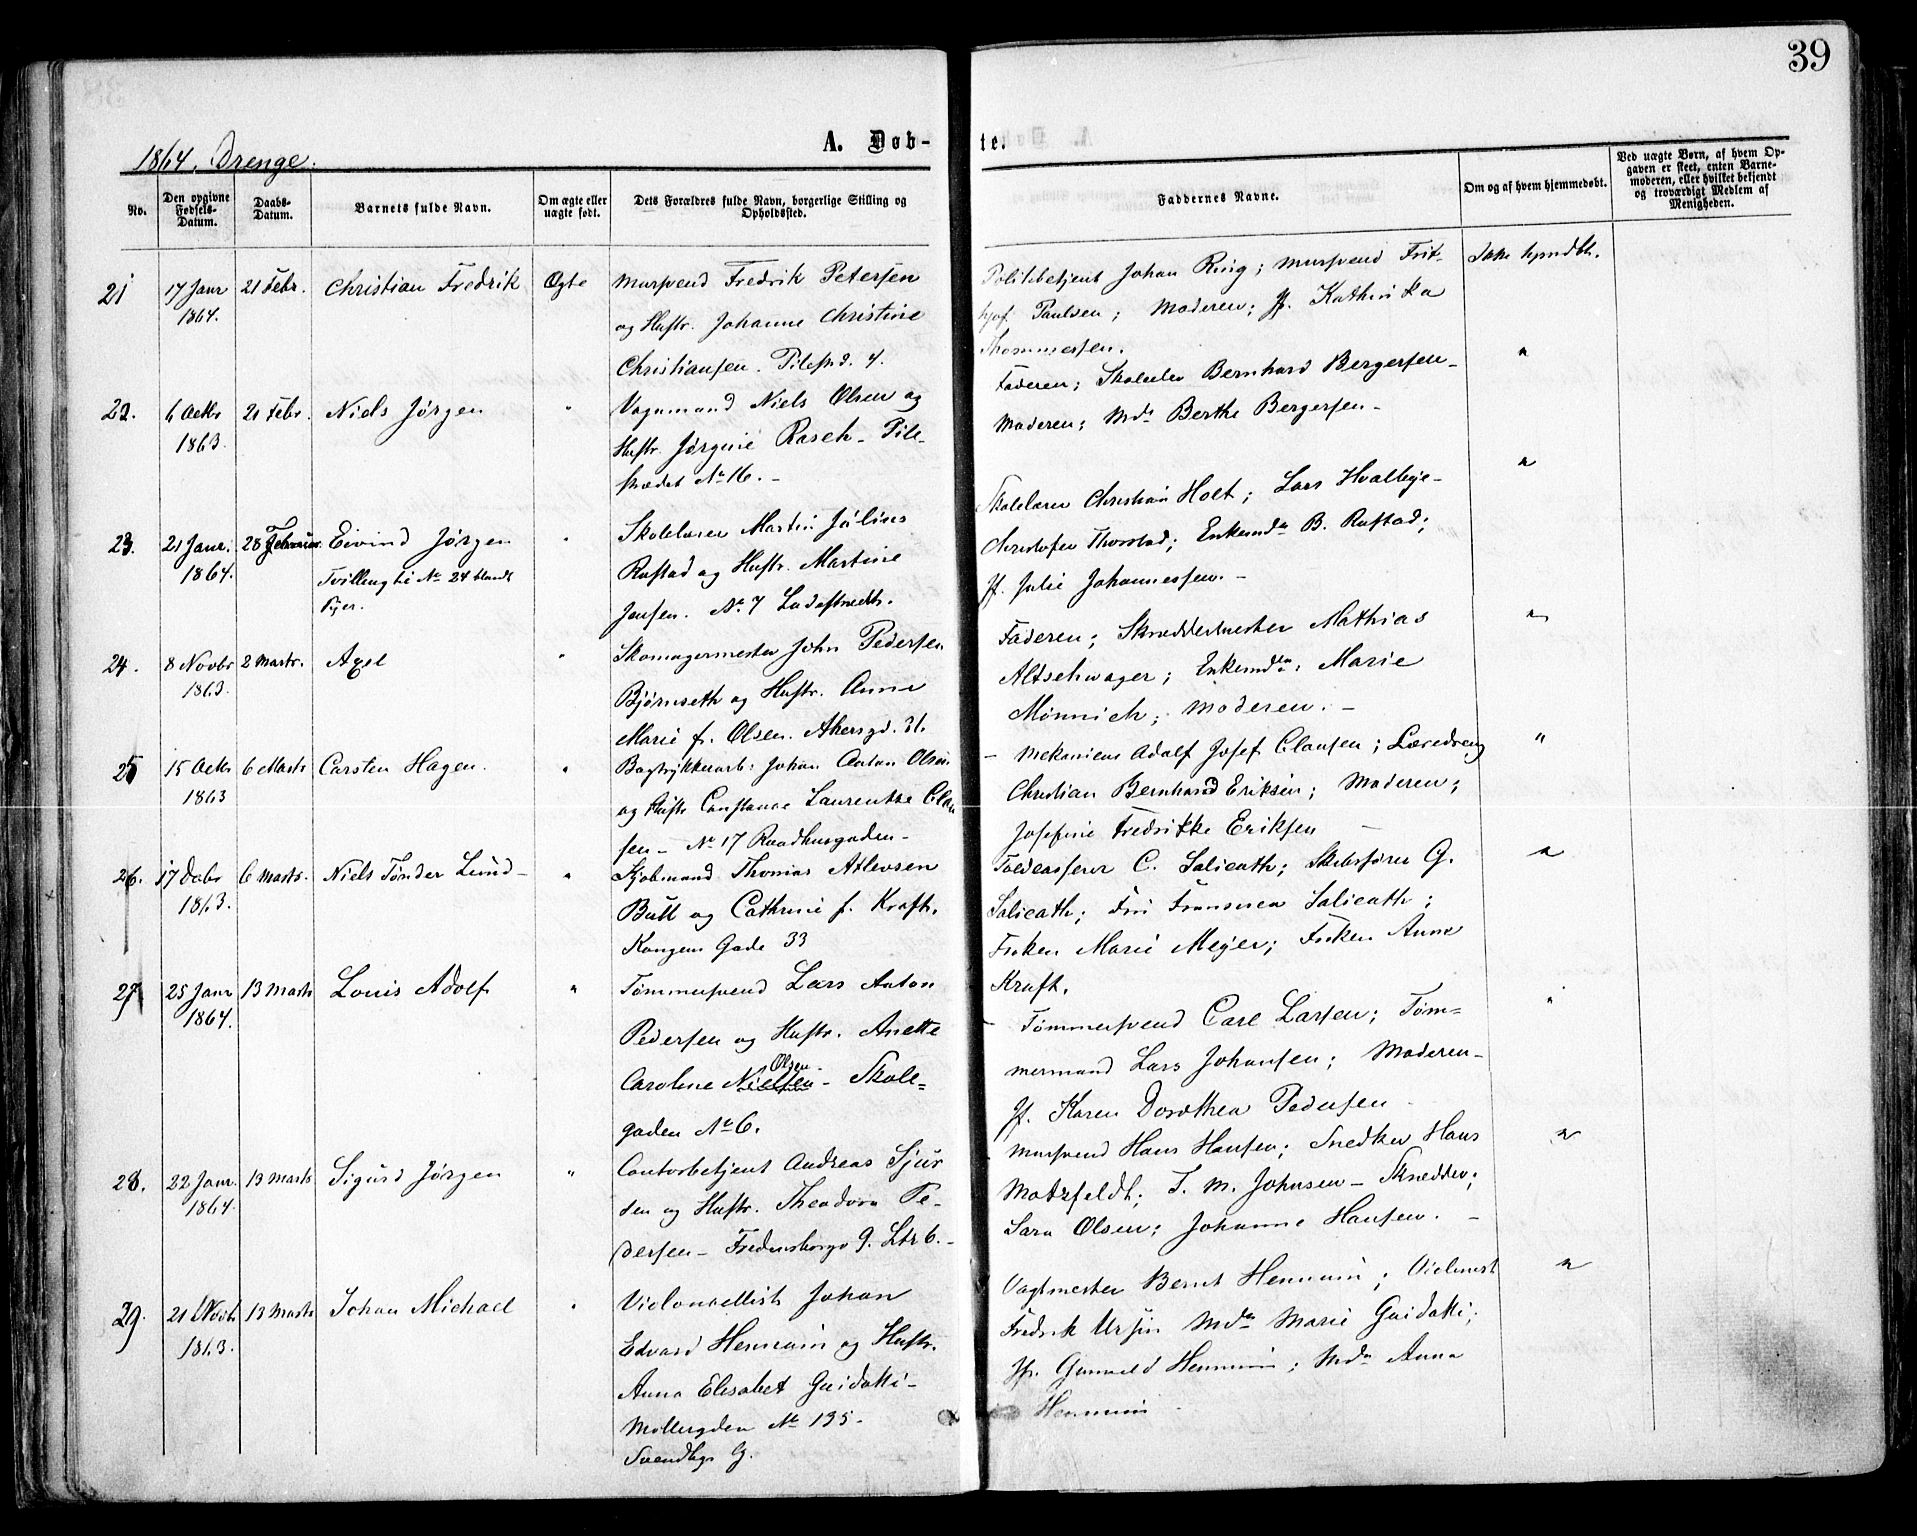 39
A. Døb-
te.
1864. Drenge.
No.
Den opgivne Fødsels-Datum.
Daabs-Datum.
Barnets fulde Navn.
Om ægte eller uægte født.
Dets Forældres fulde Navn, borgerlige Stilling og Opholdssted.
Faddernes Navne.
Om og af hvem hjemmedøbt.
Ved uægte Børn, af hvem Op-
gaven er skeet, enten Barne-
moderen, eller hvilket bekjendt
og troværdigt Medlem af
Menigheden.
21 17 Janr 21 Febr. Christian Fredrik Ægte Mursvend Fredrik Petersen
1864. og Hustr. Johanne Christine
Christiansen. Pilestrd. 4.
Politibetjent Johan Ring; Mursvend Frit-
hjof Paulsen; Moderen; Jf. Kathinka
Thommesen.
Ikke hjmdbt.
22. 6 Octbr 21 Febr. Niels Jørgen " Vognmand Niels Olsen og
1863. Hustr. Jørgine Rasch - Pile-
strædet No 16. -
Faderen; Skoleelev Bernhard Bergersen -
Moderen; Mda Berthe Bergersen -
"
23. 21 Janr. 28 Februar Eivind Jørgen " Skolelærer Martin Julius
1864. Tvilling til No 24 blandt Rustad og Hustr. Martine
Piger. Jensen. No 7
Skolelærer Christian Holt; Lars Hvalbye -
Christofer Thorstad; Enkemda B. Rustad;
Jf. Julie Johannessen. -
"
24. 8 Novbr 2 Marts. Axel " Skomagermester John Pedersen
1863. Bjørnseth og Hustr. Anne
Marie f. Olsen. Akersgd. 31.
Faderen; Skræddermester Mathias
Altschwager; Enkemda. Marie
Mønnich; Moderen. -
"
25 15 Octbr 6 Marts Carsten Hagen. " Bogtrykkerarb. Johan Anton Olsen
1863 og Hustr Constance Laurentze Clau
sen - No 17 Raadhusgaden -
- Mekanicus Adolf Josef Clausen; Læredreng
Christian Bernhard Eriksen; Moderen;
Josefine Fredrikke Eriksen -
"
26. 17 Decbr 6 Marts. Niels Tønder Lund - " Kjøbmand Thomas Atlevsen
1863. Bull og Cathrine f. Kraft.
Kongens Gade 33
Toldcasserer C. Salicath; Skibsfører G.
Salicath; Fru Fransisca Salicath;
Frøken Marie Mejer; Frøken Anne
Kraft.
"
27 25 Janr 13 Marts Louis Adolf " Tømmersvend Lars Anton
1864. Pedersen og Hustr. Anette
Olsen
Caroline Nielsen - Skole-
gaden No 6.
- Tømmersvend Carl Larsen; Tøm-
mermand Lars Johansen; Moderen -
Jf. Karen Dorothea Pedersen
"
28. 22 Janr. 13 Marts Sigurd Jørgen " Contorbetjent Andreas Sjur
1864. den og Hustr. Theodora Pe-
dersen - Fredensborgv 9. Ltr 6. -
Mursvend Hans Hansen; Snedker Hans
Motzfeldt; T. M. Johnsen - Skrædder;
Sara Olsen; Johanne Hansen. -
"
29. 21 Novb. 13 Marts Johan Michael " Violoncellist Johan
1863. Edvard Hennum og Hustr.
Anna Elisabet Guidotti -
Møllergden No 135 -
Svendbys G.
Vagtmester Bernt Hennum; Violinist
Fredrik Ursin Mda Marie Guidotti;
Jfr. Gunvald Hennum; Mda Anna
Hennum
"